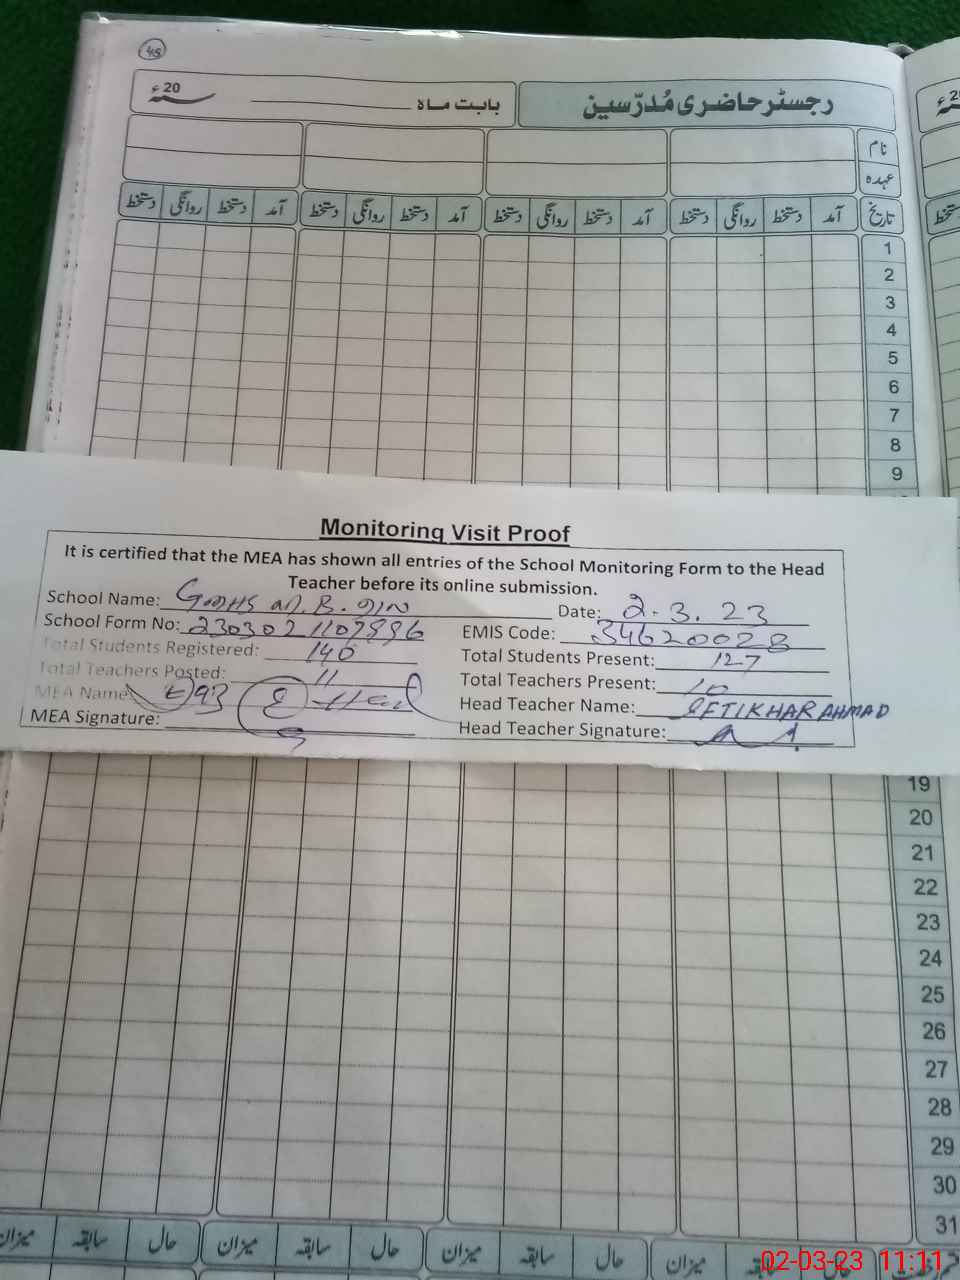 45
رجسٹر حاضری مُدرّسین
بابت ماہ ۔۔۔ سنہ 20ء
نام
عہدہ
تاریخ آمد دستخط روانگی دستخط آمد دستخط روانگی دستخط آمد دستخط روانگی دستخط آمد دستخط روانگی دستخط
دستخط
1
2
3
4
5
6
7
8
9
Monitoring Visit Proof
It is certified that the MEA has shown all entries of the School Monitoring Form to the Head
Teacher before its online submission.
School Name: Date: 2.3.23
School Form No: EMIS Code: 34620028
Total Students Registered: 140 Total Students Present: 127
Total Teachers Posted: 11 Total Teachers Present: 10
MEA Name: Head Teacher Name: IFTIKHAR AHMAD
MEA Signature: Head Teacher Signature:
19
20
21
22
23
24
25
26
27
28
29
30
31
حال سابقہ میزان حال سابقہ میزان حال سابقہ میزان
02-03-23 11:11